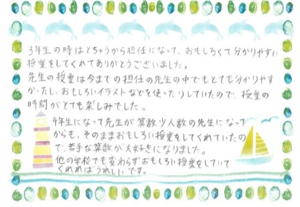 3年生の時はとちゅうから担任になって、おもしろくて分かりやすい
授業をしてくれてありがとうございました。
先生の授業は今までの担任の先生の中でもとても分かりやすく
か、たし、おもしろいイラストなどを使ったりしていたので、授業の
時間がとても楽しみでした。
4年生になって先生が算数少人数の先生になって
からも、そのままおもしろい授業をしてくれていたの
で、苦手な算数が大好きになりました。
他の学校でも変わらずおもしろい授業をしていて
くれればうれしいです。